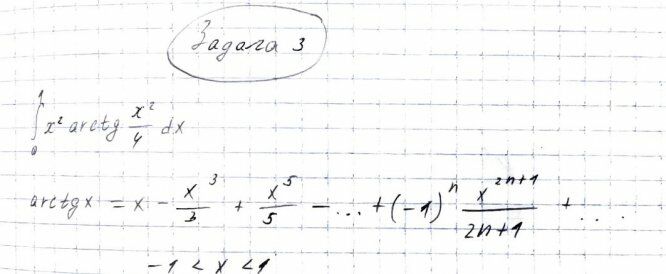 Задача 3
∫₀¹ x² arctg x²/4 dx
arctg x = x - x³/3 + x⁵/5 - ... + (-1)ⁿ x²ⁿ⁺¹/2n+1 + ...
-1 < x < 1